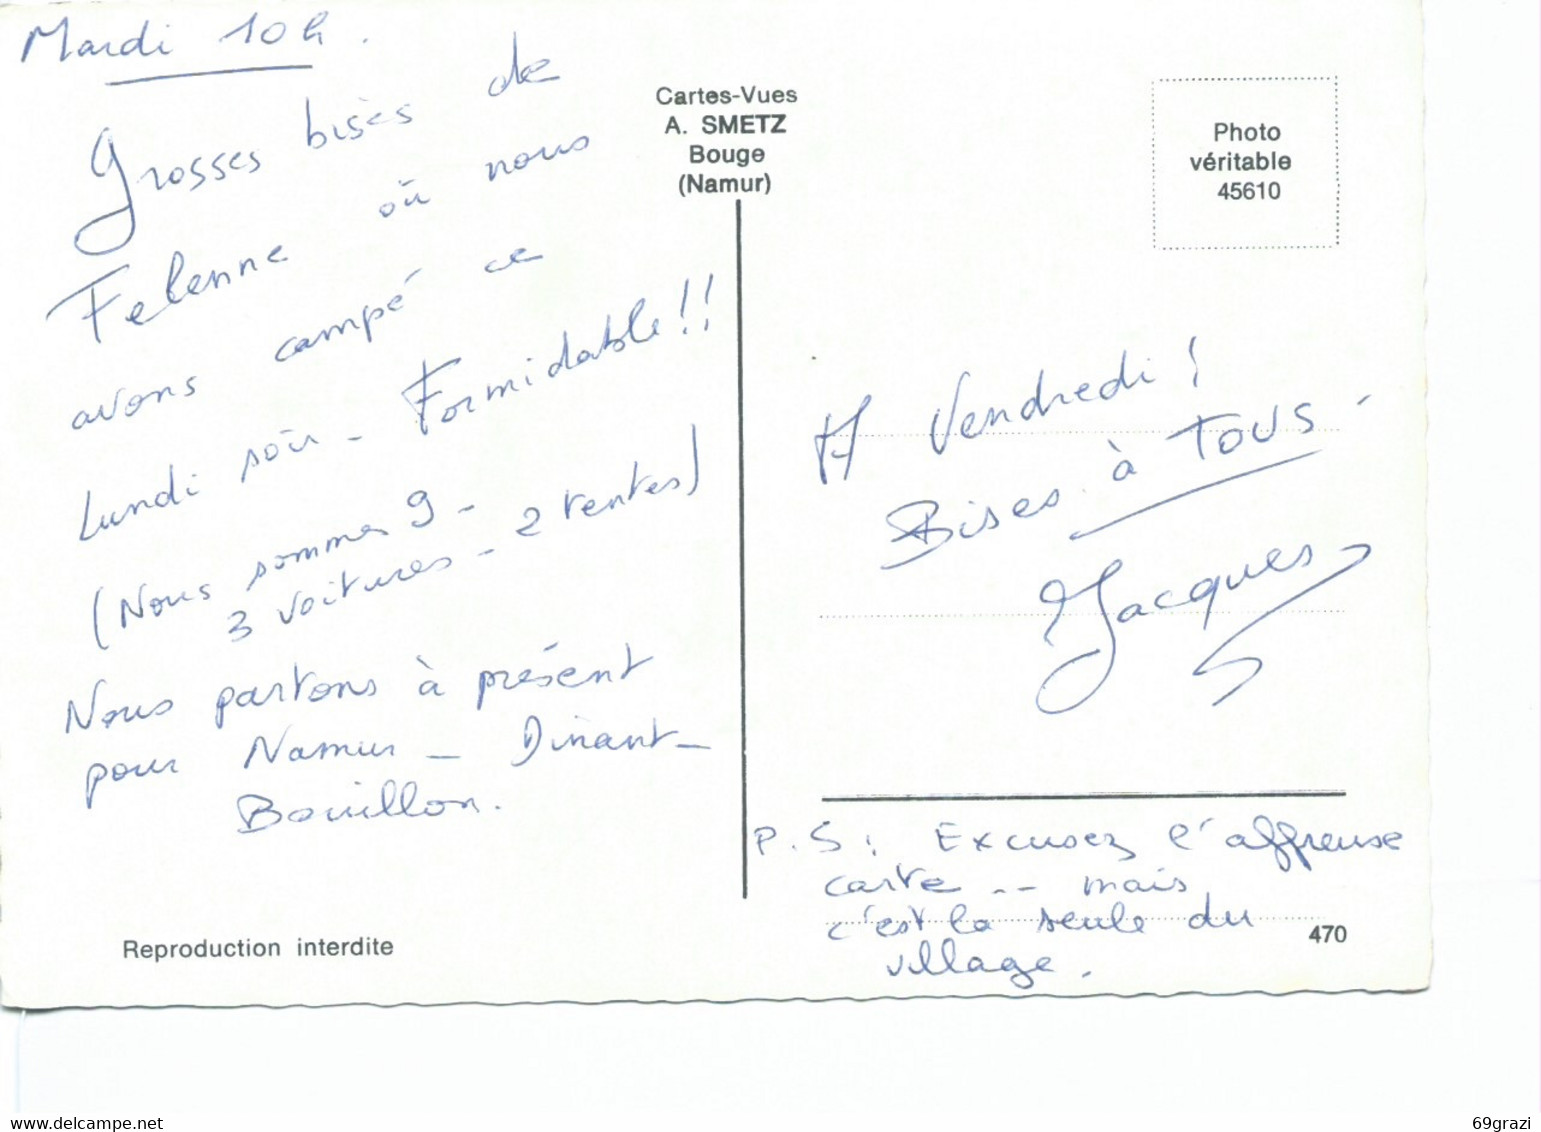 Mardi 10h.
Grosses bises de
Felenne où nous
avons campé ce
Lundi soir - Formidable!!
(Nous sommes 9 -
3 voitures - 2 tentes)
Nous partons à présent
pour Namur - Dinant -
Bouillon.
Reproduction interdite
Cartes-Vues
A. SMETZ
Bouge
(Namur)
Photo
véritable
45610
A Vendredi!
Bises à TOUS -
Jacques
P.S: Excusez l'affreuse
carte -- mais
c'est la seule du
village.
470
Delcampe.net
69grazi